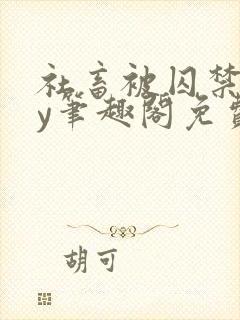 社畜被囚禁
y笔趣阁免费
胡可